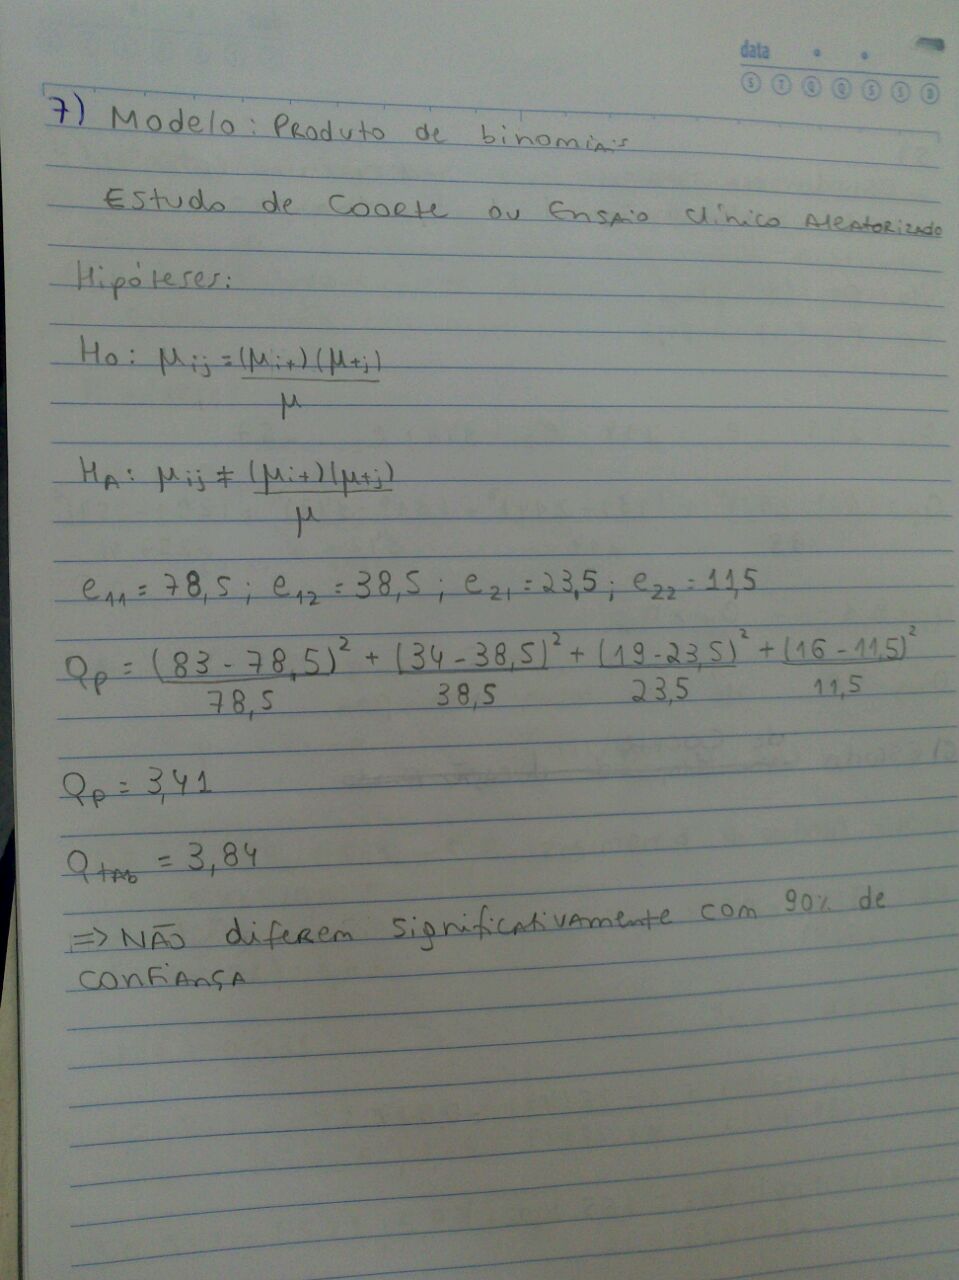 data
S T Q Q S S D
7) Modelo: Produto de binomiais
Estudo de Coorte ou Ensaio clínico Aleatorizado
Hipóteses:
H0: μij = (μi+)(μ+j)
μ
HA: μij ≠ (μi+)(μ+j)
μ
e11 = 78,5 ; e12 = 38,5 ; e21 = 23,5 ; e22 = 11,5
Qp = (83 - 78,5)² + (34 - 38,5)² + (19 - 23,5)² + (16 - 11,5)²
78,5 38,5 23,5 11,5
Qp = 3,41
Qtab = 3,84
=> NÃO diferem significativamente com 90% de
confiança